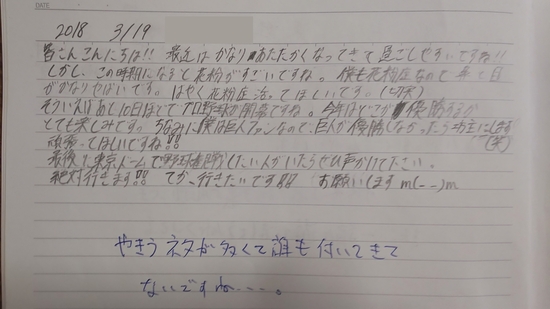 DATE
2018 3/19
皆さんこんにちは!! 最近はかなりあたたかくなってきて過ごしやすいですね!!
しかし、この時期になると花粉がすごいですね。僕も花粉症なので鼻と目
がかなりやばいです。はやく花粉症治ってほしいです。(切実)
そういえばあと10日ほどでプロ野球が開幕ですね。今年はどこが優勝するか
とても楽しみです。ちなみに僕は巨人ファンなので、巨人が優勝しなかったら坊主にします(笑)
頑張ってほしいですね!!
最後に東京ドームで野球観戦したい人がいたらぜひ声かけて下さい。
絶対行きます!! てか、行きたいです!! お願いしますm(--)m
やきうネタが多くて誰も付いてきて
ないですね・・・・。